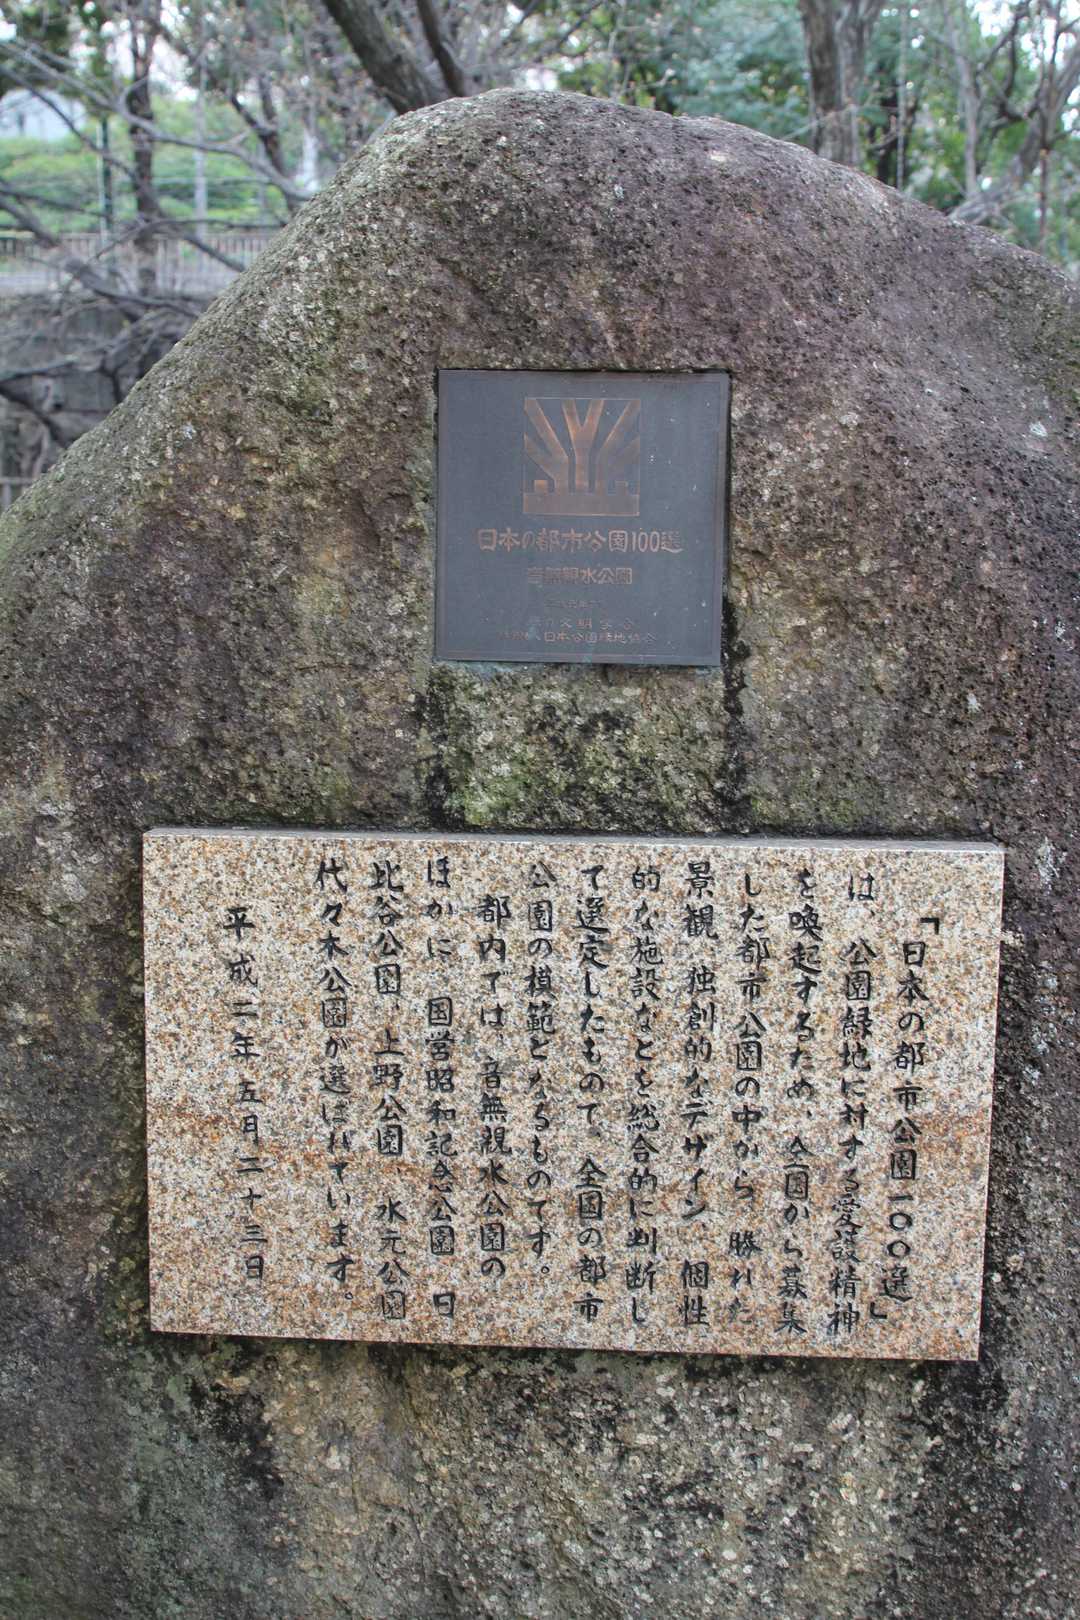 日本の都市公園100選
音無親水公園
文明学会
日本公園緑地協会
「日本の都市公園一〇〇選」
は、公園緑地に対する愛護精神
を喚起するため、全国から募集
した都市公園の中から、勝れた
景観、独創的なデザイン、個性
的な施設などを総合的に判断し
て選定したもので、全国の都市
公園の模範となるものです。
都内では、音無親水公園の
ほかに、国営昭和記念公園、日
比谷公園、上野公園、水元公園
代々木公園が選ばれています。
平成二年五月二十三日